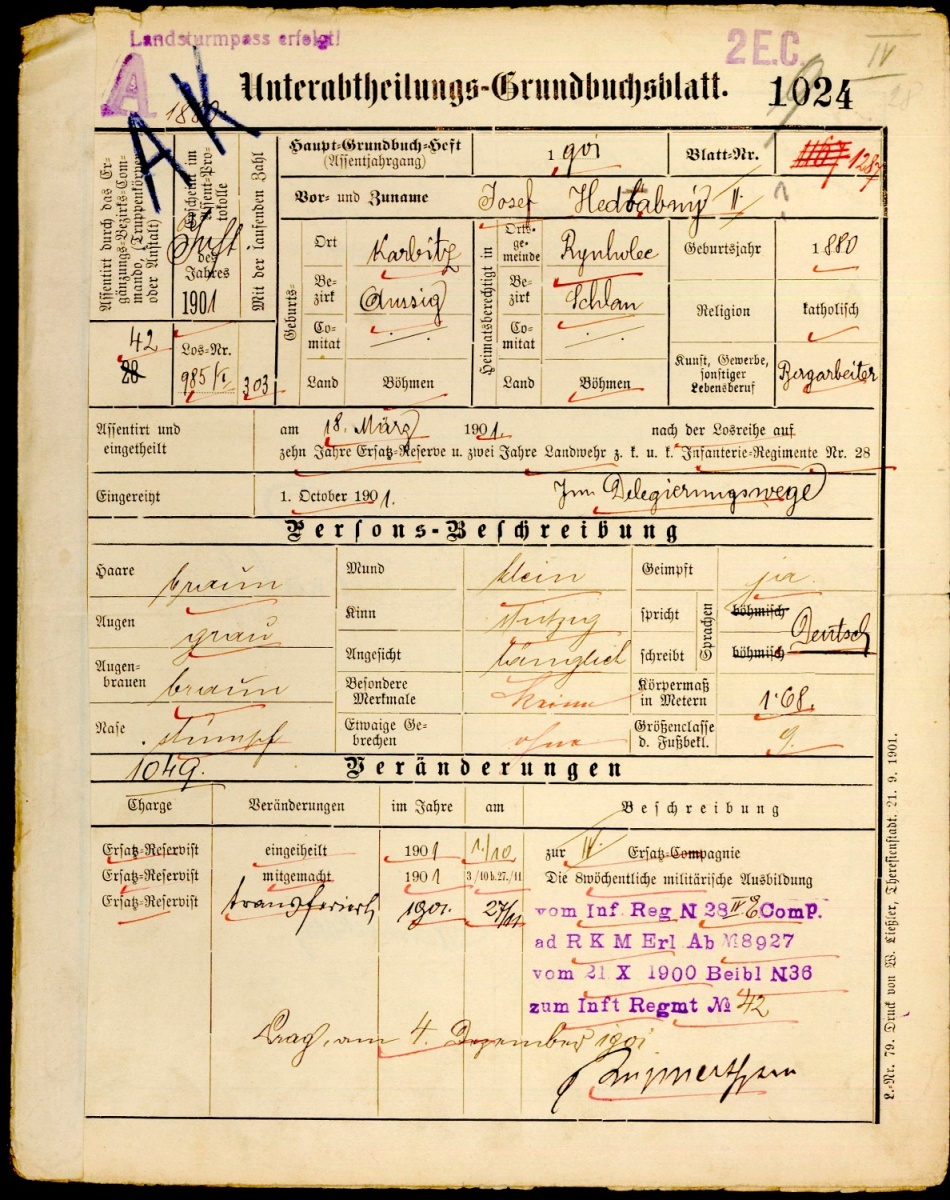 Landsturmpass erfolgt!
2 E.C.
IV
A
A K
1880
Unterabtheilungs-Grundbuchsblatt.
1024
28
Assentirt durch das Ergänzungs-Bezirks-Commando, (Truppenkörper oder Anstalt)
42
28
Erscheint im Assent-Protokolle
des
Jahres
1901
Los-Nr.
985/I
Mit der laufenden Zahl
303
Haupt-Grundbuch-Heft
(Assentjahrgang)
1901
Blatt-Nr.
1167 1287
Vor- und Zuname
Josef Hedbabný II.
?
Geburts-
Ort Karbitz
Bezirk Aussig
Comitat
Land Böhmen
Heimatsberechtigt in
Ortsgemeinde Rynholec
Bezirk Schlan
Comitat
Land Böhmen
Geburtsjahr 1880
Religion katholisch
Kunst, Gewerbe, sonstiger Lebensberuf Bergarbeiter
Assentirt und eingetheilt
am 18. März 1901. nach der Losreihe auf
zehn Jahre Ersatz-Reserve u. zwei Jahre Landwehr z. k. u. k. Infanterie-Regimente Nr. 28
Eingereiht 1. October 1901. Im Delegierungswege
Persons-Beschreibung
Haare braun
Augen grau
Augenbrauen braun
Nase stumpf
Mund klein
Kinn
Angesicht länglich
Besondere Merkmale keine
Etwaige Gebrechen ohne
Geimpft ja
Sprachen
spricht böhmisch
Deutsch
schreibt böhmisch
Körpermaß in Metern 1·68.
Größenclasse d. Fußbekl. 9.
1049.
Veränderungen
Charge Veränderungen im Jahre am Beschreibung
Ersatz-Reservist eingeiheilt 1901 1./10 zur IV. Ersatz-Compagnie
Ersatz-Reservist mitgemacht 1901 3/10 b. 27./11 Die 8wöchentliche militärische Ausbildung
Ersatz-Reservist transferiert 1901. 27/11 vom Inf. Reg N 28 IV E Comp.
ad R K M Erl Ab № 8927
vom 21 X 1900 Beibl N 36
zum Inft Regmt № 42
Prag, am 4. Dezember 1901
L.-Nr. 79. Druck von W. Ließler, Theresienstadt. 21. 9. 1901.